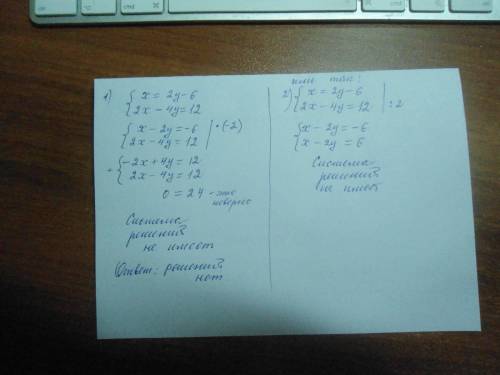 1) { x = 2y - 6
{ 2x - 4y = 12
{ x - 2y = -6 | · (-2)
{ 2x - 4y = 12
{ -2x + 4y = 12
{ 2x - 4y = 12
0 = 24 - это
неверно
Система
решений
не имеет
Ответ: решений
нет
или так:
2) { x = 2y - 6
{ 2x - 4y = 12 | : 2
{ x - 2y = -6
{ x - 2y = 6
Система
решений
не имеет